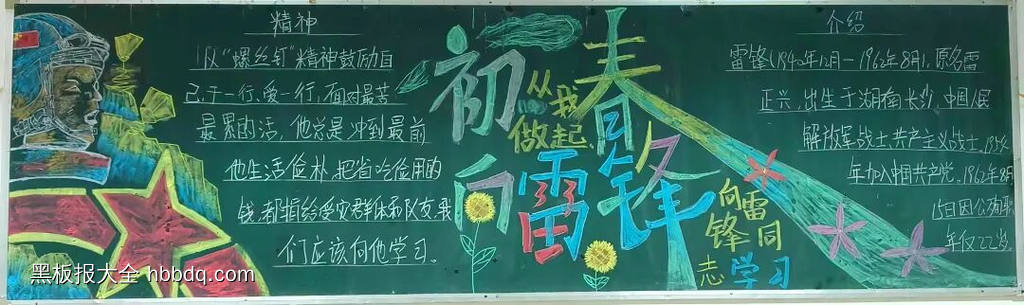 精神
以“螺丝钉”精神鼓励自
己,干一行、爱一行,面对最苦
最累的活,他总是冲到最前
他生活俭朴,把省吃俭用的
钱,都捐给受灾群体和队友,我
们应该向他学习。
初春
从我
做起、
向雷锋
向雷
锋同
志学习
介绍
雷锋(1940年12月—1962年8月),原名雷
正兴,出生于湖南长沙,中国人民
解放军战士、共产主义战士,
年加入中国共产党,1962年8月
15日因公殉职
年仅22岁。
黑板报大全 hbbdq.com